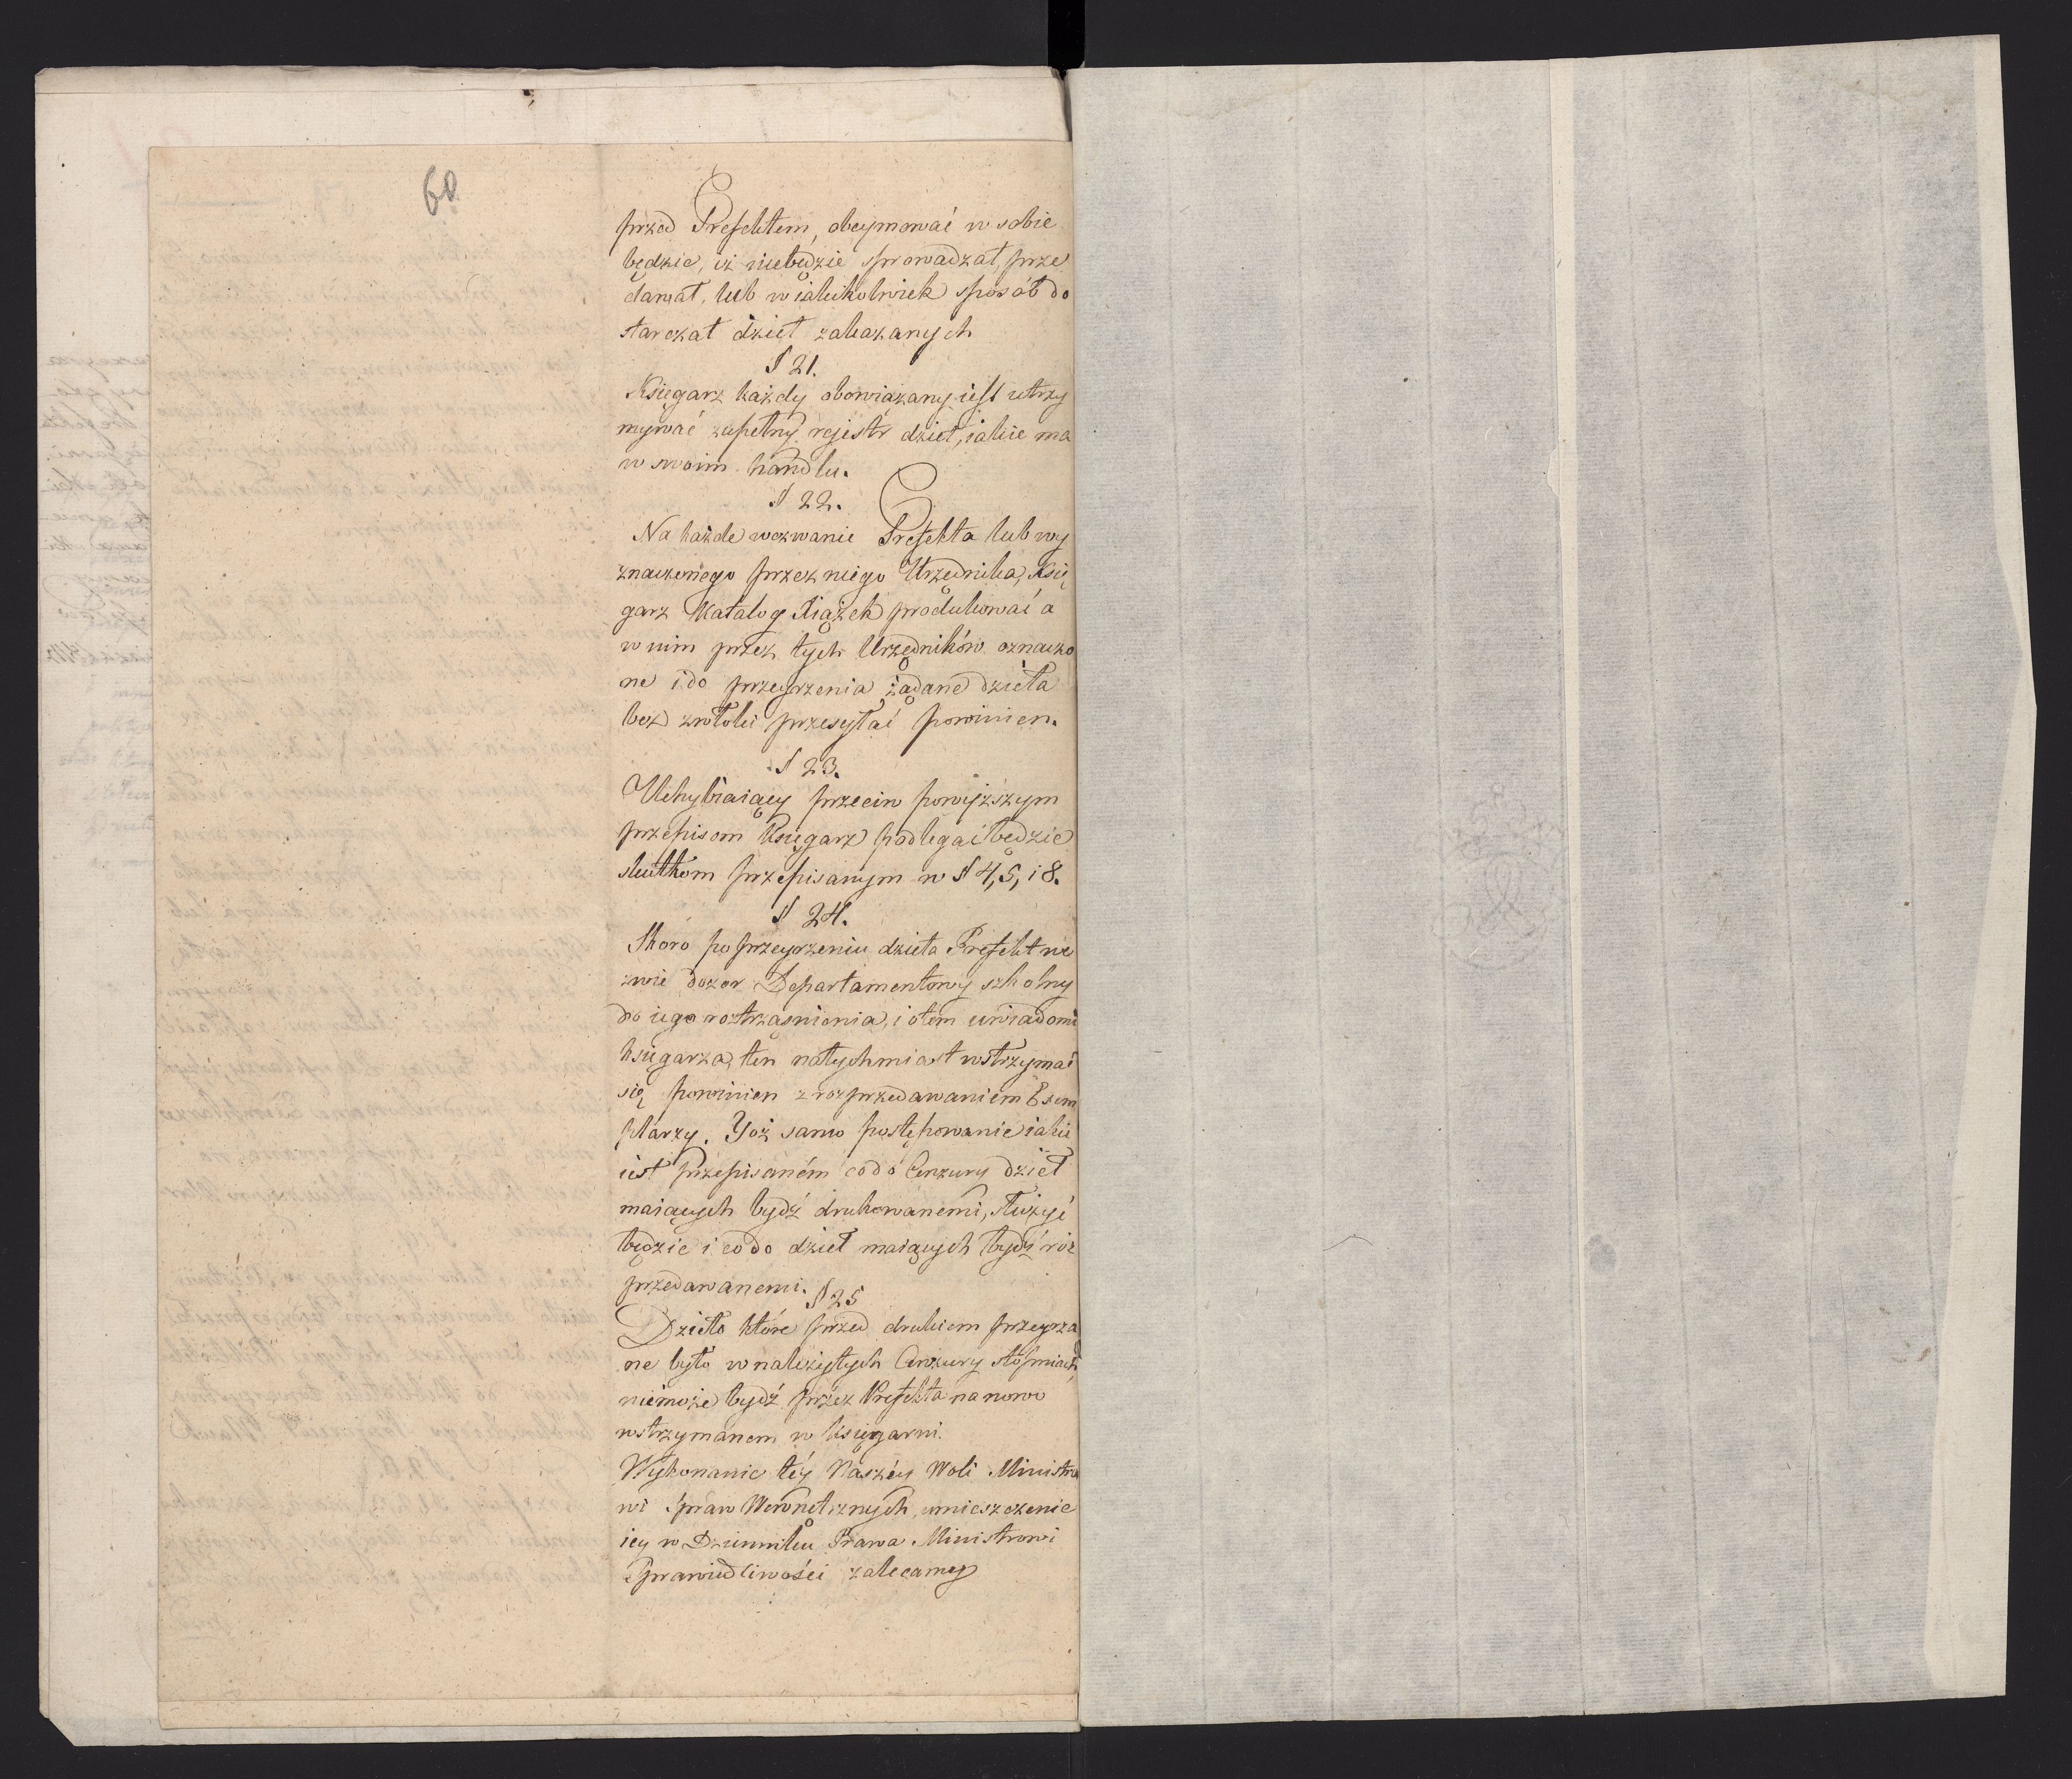 60
przed Prefektem, obeymować w sobie
będzie, iż niebędzie sprowadzał, prze
dawał, lub w iakikolwiek sposób do
starczał dzieł zakazanych
§ 21.
Księgarz każdy obowiązany iest utrzy
mywać zupełny rejestr dzieł, iakie ma
w swoim handlu.
§ 22.
Na każde wezwanie Prefekta lub wy
znaczonego przez niego Urzędnika, Księ
garz Katalog Xiążek produkować a
w nim przez tych Urzędników oznaczo
ne i do przeyrzenia żądane dzieła
bez zwłoki przesyłać powinien.
§ 23.
Uchybiaiący przeciw powyższym
przepisom Księgarz podlegać będzie
skutkom przepisanym w § 4, 5, i 8.
§ 24.
Skoro po przeyrzeniu dzieła Prefekt we
zwie dozor Departamentowy szkolny
do iego roztrząsnienia, i otem uwiadomi
księgarza, ten natychmiast wstrzymać
się powinien z rozprzedawaniem Exem
plarzy. Toż samo postępowanie iakie
iest przepisaném co do Cenzury dzieł
maiących bydź drukowanemi, służyć
będzie i co do dzieł maiących bydź roz
przedawanemi. § 25
Dzieło które przed drukiem przeyrza
ne było w należytych Cenzury stopniach
niemoże bydź przez Prefekta na nowo
wstrzymanem w księgarni.
Wykonanie téy Naszéy Woli Ministro
wi Spraw Wewnętrznych, umieszczenie
iey w Dzienniku Prawa Ministrowi
Sprawiedliwości zalecamy